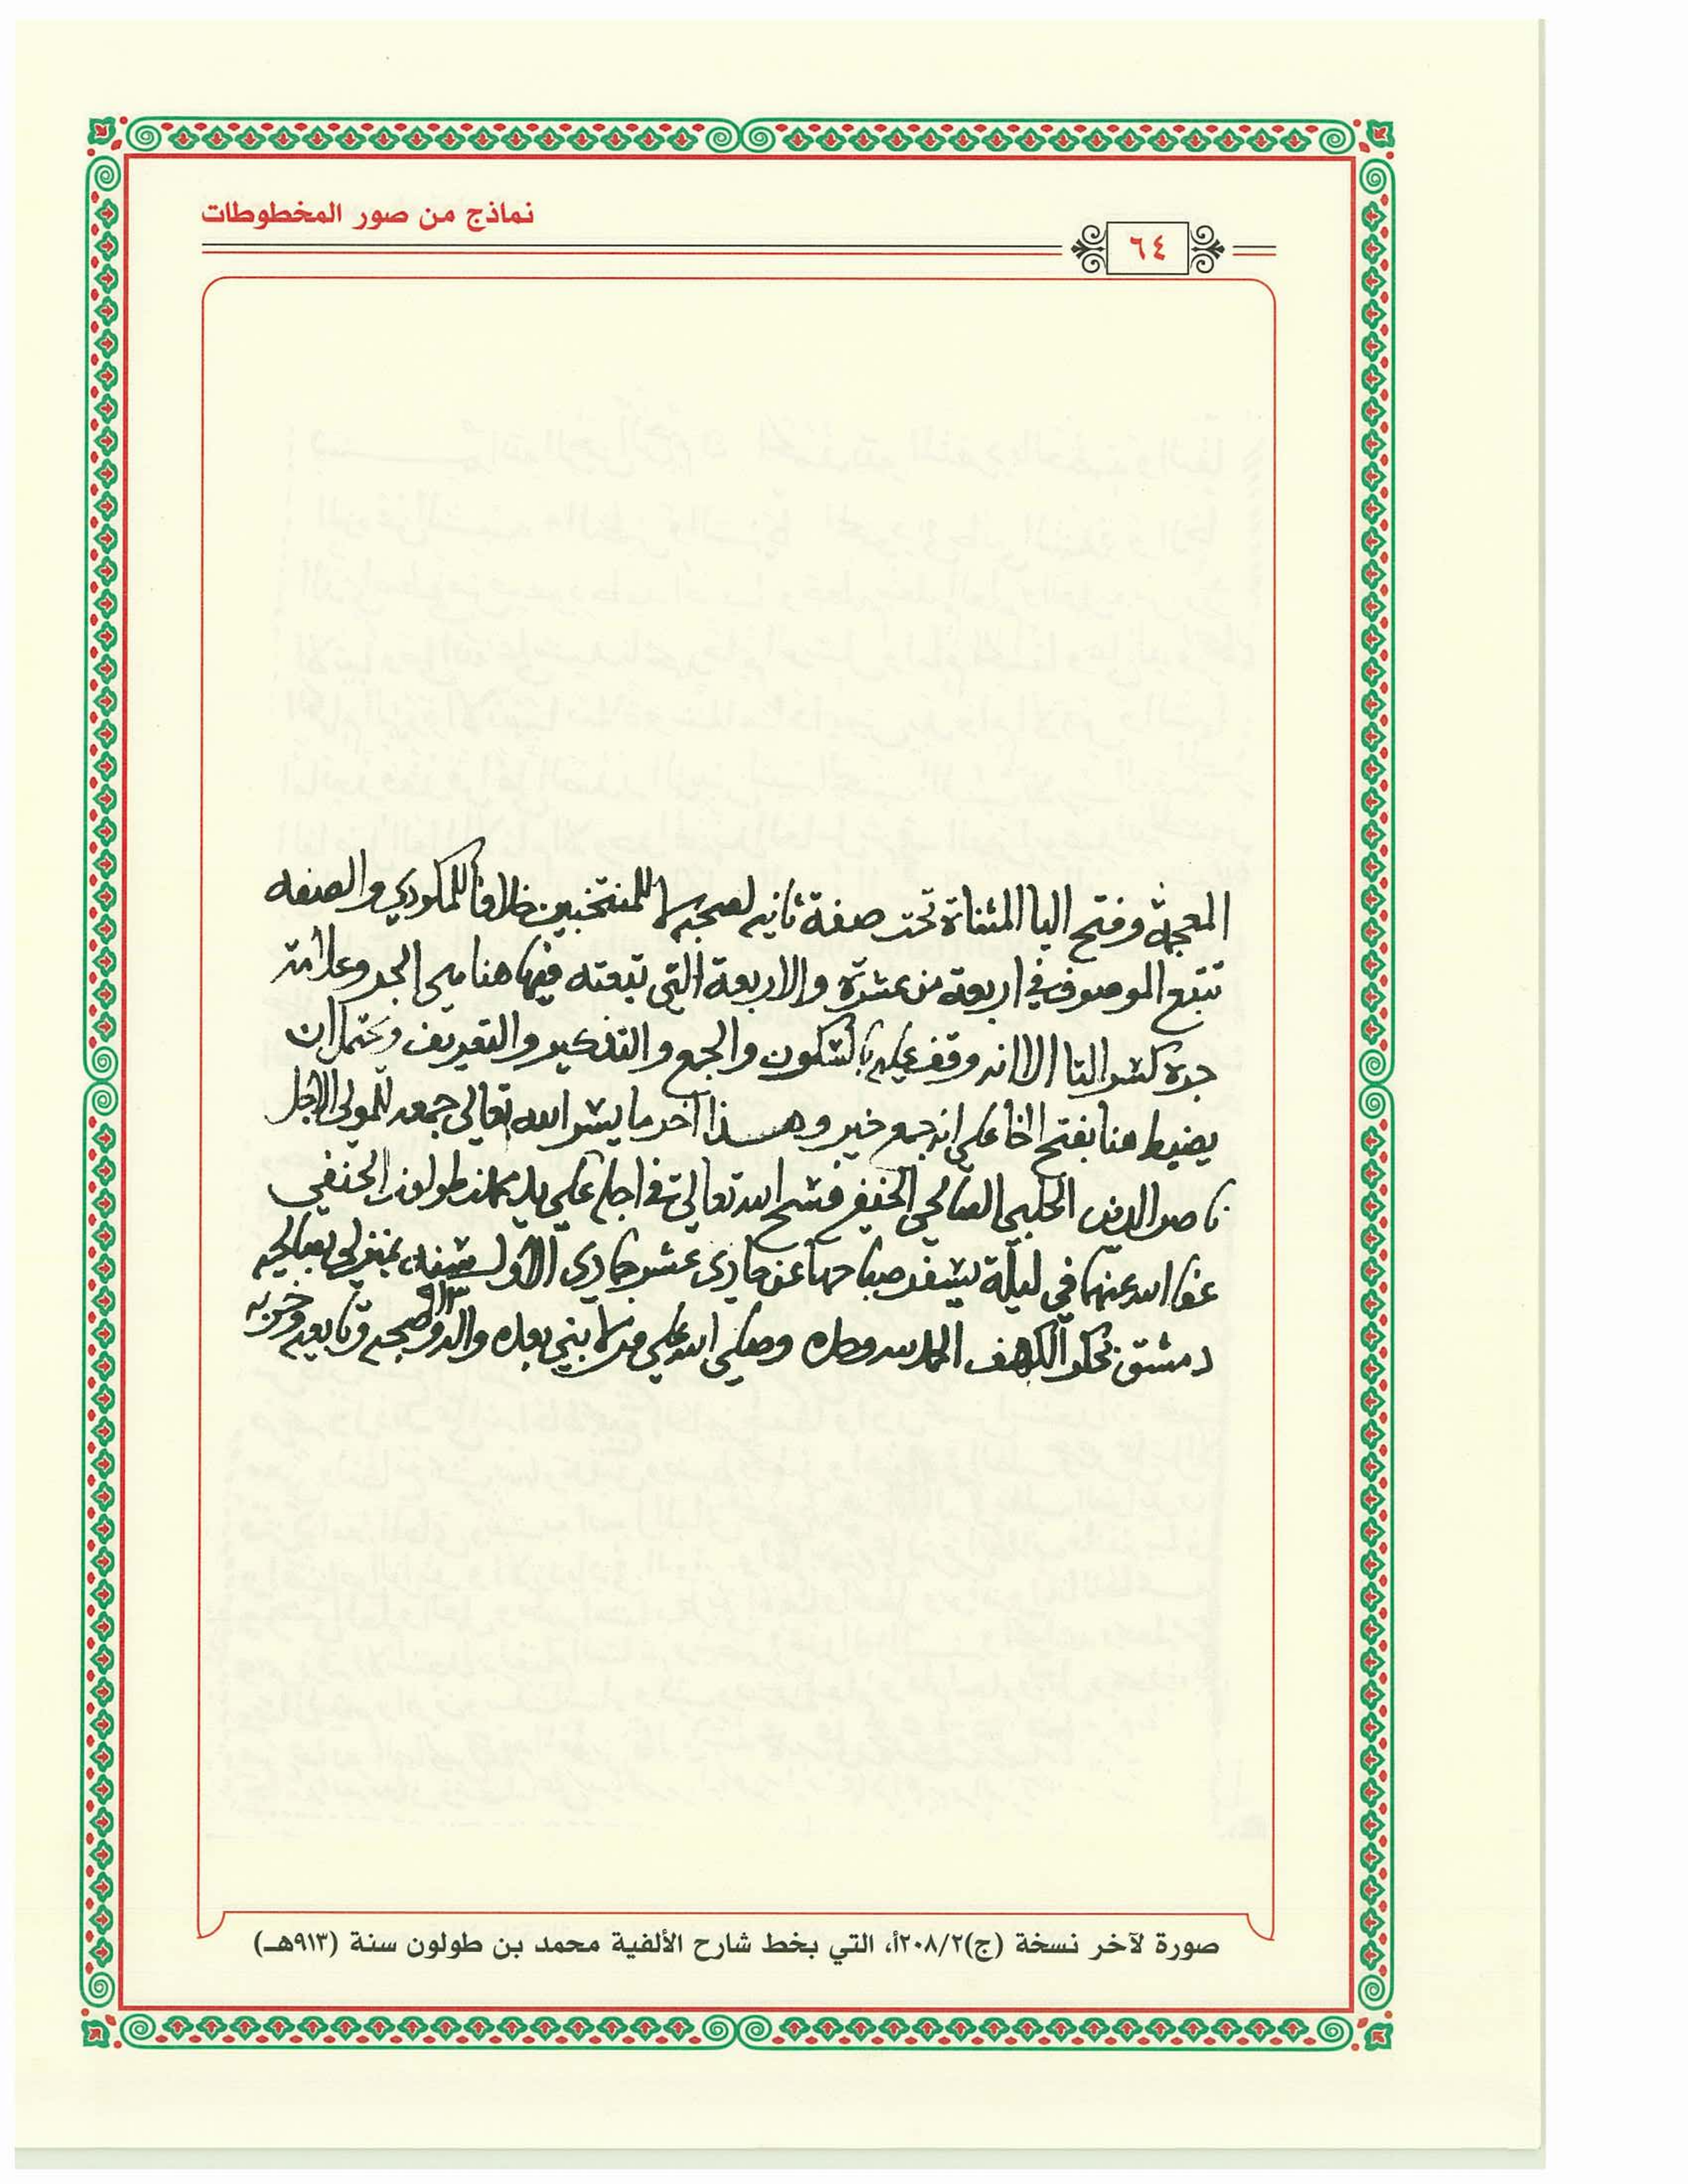 نماذج من صور المخطوطات
٦٤
المعجمة وفتح اليا المثناة تحت صفة ثانيه لصحبه لا للمنتخبين خلافا للمكودي والصفه
تتبع الموصوف في اربعة من عشرة والاربعة التي تبعته فيها هنا هي الجر وعلامة
جره كسر التا الا انه وقف عليه بالسكون والجمع والتذكير والتعريف ويحتمل ان
يضبط هنا بفتح الخا على انه جمع خير وهذا آخر ما يسر الله تعالى جمعه للمولى الاجل
ناصر الدين الحلبي الصالحي الحنفي فسح الله تعالى في اجله على يد محمد بن طولون الحنفي
عفا الله عنهما في ليلة يسفر صباحها عن حادي عشر جمادى الأول سنة ٩١٣ بمنزلي بصالحية
دمشق الكهف الحمد لله وحده وصلى الله على من لا نبي بعده واله وصحبه وتابعيه وحزبه
صورة لآخر نسخة (ج)٢٠٨/٢أ، التي بخط شارح الألفية محمد بن طولون سنة (٩١٣هـ)